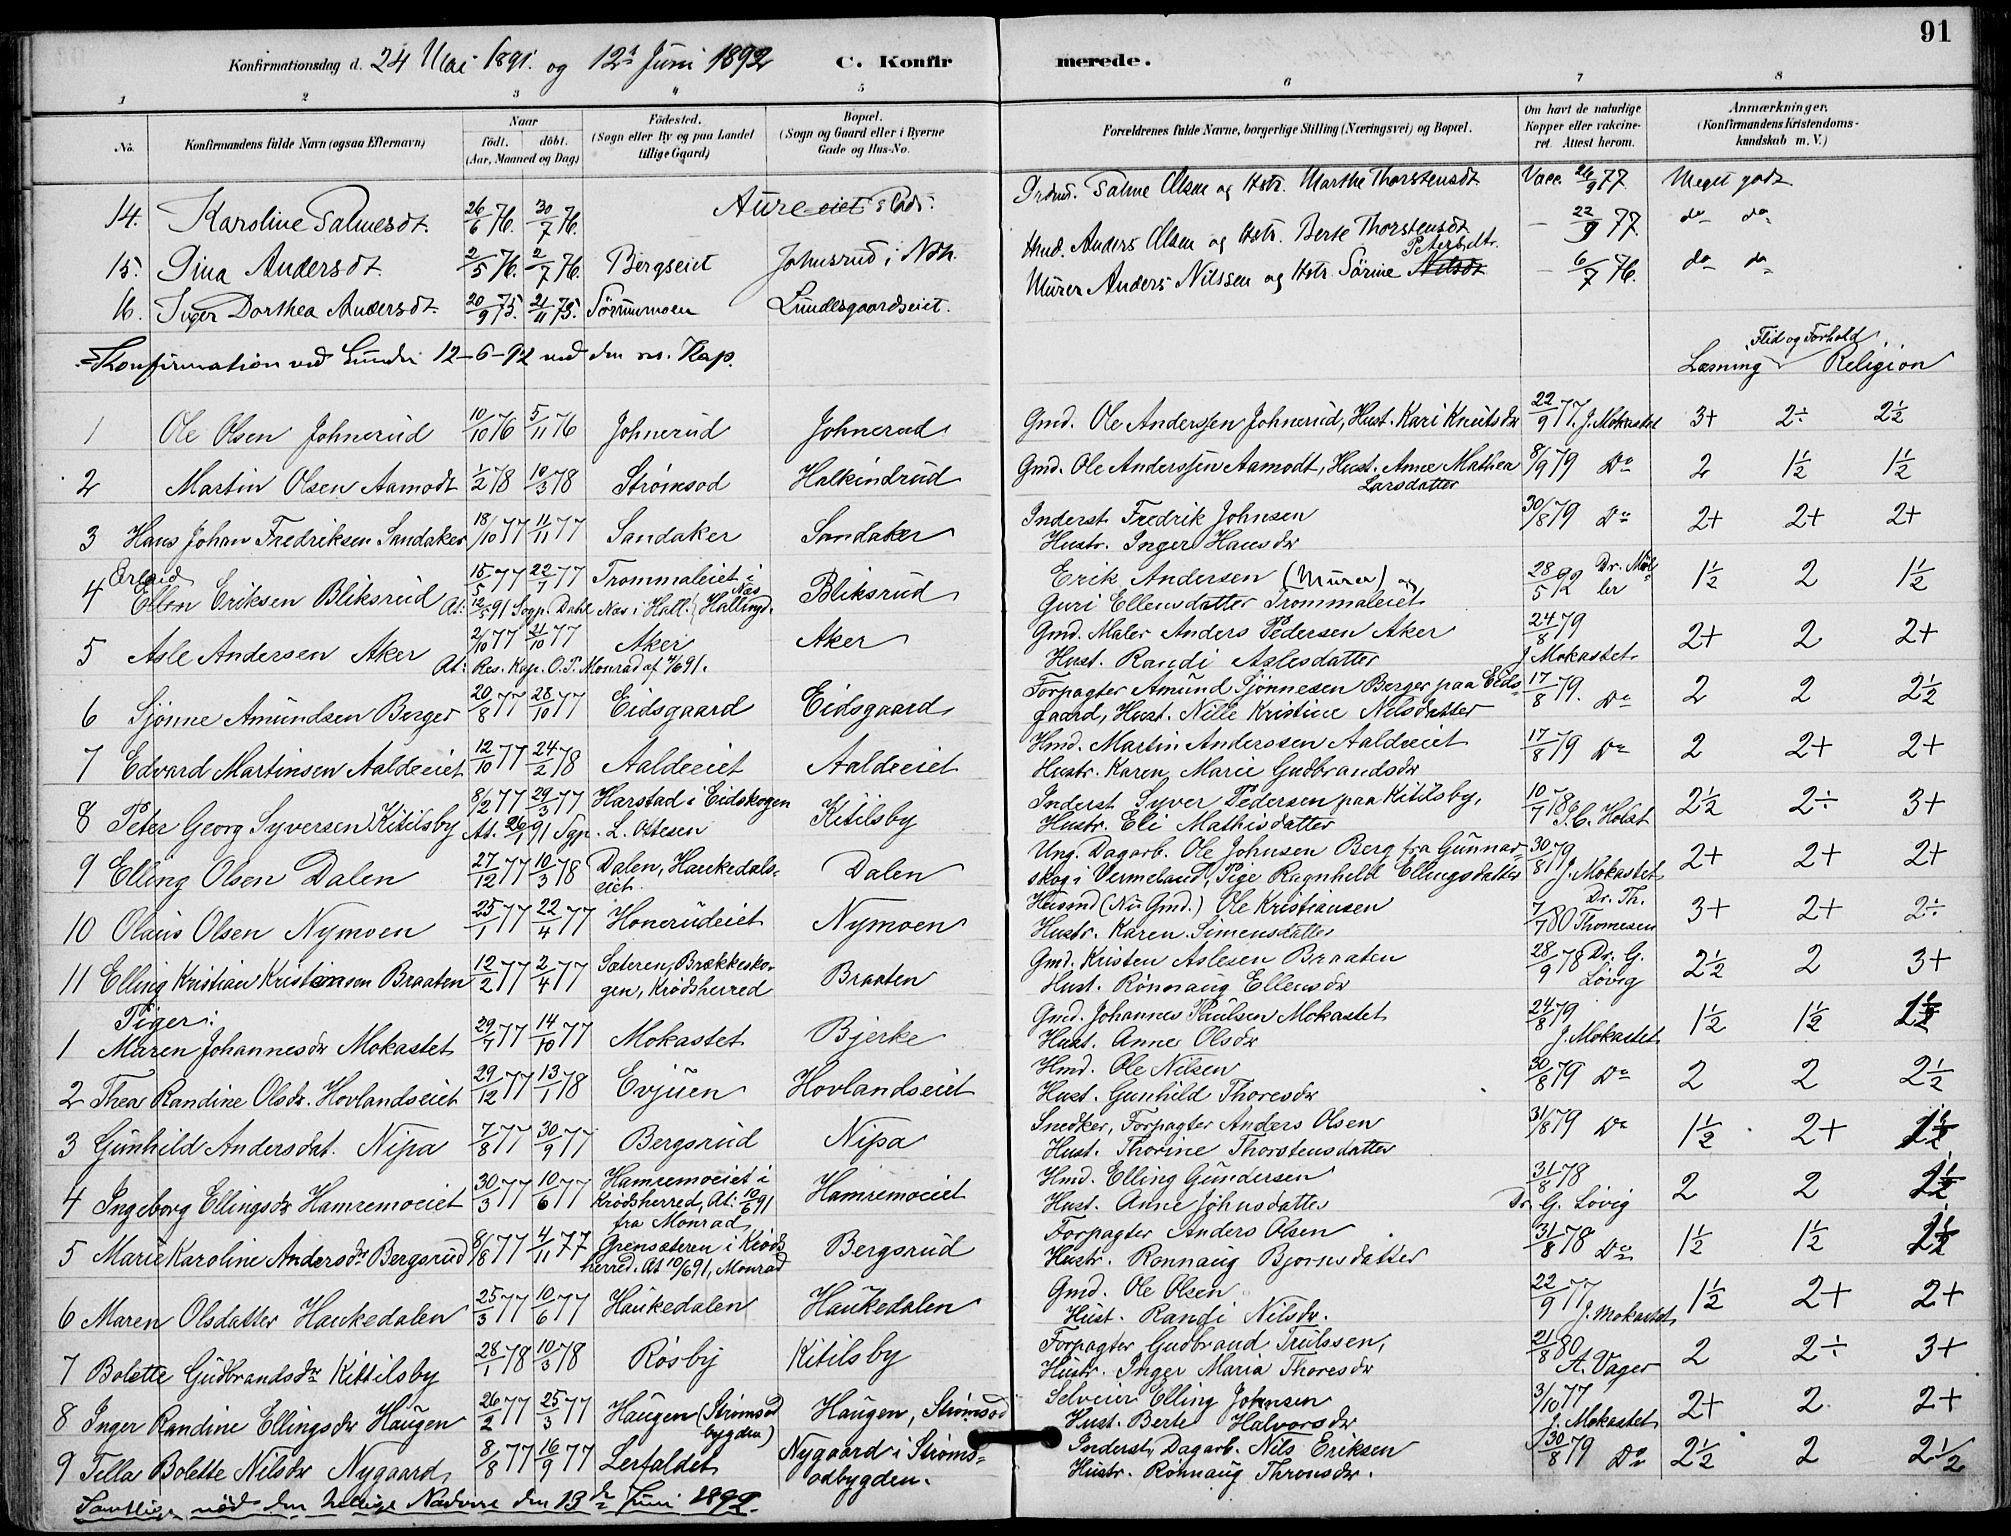 91
Konfirmationsdag d. 24 Mai 1891. og 12te Juni 1892 C. Konfir merede.
1 2 3 4 5 6 7 8
No. Konfirmandens fulde Navn (ogsaa Efternavn) Naar født. døbt. (Aar, Maaned og Dag) Fødested. (Sogn eller By og paa Landet tillige Gaard) Bopæl. (Sogn og Gaard eller i Byerne Gade og Hus-No. Forældrenes fulde Navne, borgerlige Stilling (Næringsvei) og Bopæl. Om havt de naturlige Kopper eller vakcineret. Attest herom. Anmærkninger. (Konfirmandens Kristendomskundskab m. V.)
14. Karoline Palmesdt. 26/6 76. 30/7 76. Aure eiet Palme Olsen og Hstr. Marthe Thorstensdt Vacc. 26/9 77 Meget godt
15. Gina Andersdt 2/5 76. 2/7 76. Bergseiet Johnsrud i Ndh. Hmd. Anders Olsen og Hstr. Berte Thorstensdt — 22/9 77 do do
16. Inger Dorthea Andersdt. 20/9 75. 21/11 75. Sörummoen Lundesgaardseiet. Murer Anders Nilssen og Hstr. Sörine Nilsdt Petersdtr. — 6/7 76. do do
Konfirmation ved Lunder 12-6-92 ved den res. Kap. Læsning Flid og Forhold Religion
1 Ole Olsen Johnerud 10/10 76 5/11 76 Johnerud Johnerud Gmd. Ole Anderssen Johnerud, Hust. Kari Knutsdr 22/9 77. J. Mokastet 3+ 2÷ 2½
2 Martin Olsen Aamodt 1/2 78 10/3 78 Strømsod Halkindrud Gmd. Ole Anderssen Aamodt, Hust. Anne Mathea Larsdatter 8/9 79 Do 2 1½ 1½
3 Hans Johan Fredriksen Sandaker 18/10 77 11/11 77 Sandaker Sandaker Inderst Fredrik Johnsen
Hustr. Inger Hansdr 30/8 79 Do 2+ 2+ 2+
4 Erland Ellen Eriksen Bliksrud 15/5 77 22/7 77 Trommaleiet i Næs Hallingd. Bliksrud Erik Andersen (Murer) og 28/5 92 Dr. Møller 1½ 2 1½
At: 12/5 91 Sogp. Dahl Næs i Hall. Guri Ellensdatter Trommaleiet
5 Asle Andersen Aker 2/10 77 21/10 77 Aker Aker Gmd. Maler Anders Pedersen Aker 24/8 79 2+ 2 2+
At: Res. Kap. O. P. Monrad af 4/6 91. Hust. Randi Aslesdatter J Mokastet
6 Sjønne Amundsen Berger 20/8 77 28/10 77 Eidsgaard Eidsgaard Forpagter Amund Sjønnesen Berger paa Eidsgaard, Hust. Nille Kristine Nilsdatter 17/8 79. Do 2 2 2½
7 Edvard Martinsen Aaldeeiet 12/10 77 24/2 78 Aaldeeiet Aaldeeiet Hmd. Martin Anderssen Aaldeeiet
Hustr. Karen Marie Gudbrandsdr 17/8 79 Do 2 2+ 2+
8 Peter Georg Syversen Kitilsby 8/2 77 29/3 77 Harstad i Eidskogen Kitilsby Inderst Syver Pedersen paa Kitilsby, 10/7 78 C. Holst 2½ 2÷ 3+
At. 26/1 91 Sgp. L. Ottesen Hustr. Eli Mathisdatter
9 Elling Olsen Dalen 27/12 77 10/3 78 Dalen, Haukedalseiet Dalen Ung. Dagarb. Ole Johnsen Berg fra Gunnarskog i Vermeland, Pige Ragnhild Ellingsdatter 30/8 79 J. Mokastet 2+ 2+ 2+
10 Olaus Olsen Nymoen 25/1 77 22/4 77 Honerudeiet Nymoen Husmd (Nu Gmd.) Ole Kristiansen
Hustr. Karen Simensdatter 7/7 80 Dr. Th. Thomesen 3+ 2+ 2÷
11 Elling Kristian Kristiansen Braaten 12/2 77 2/4 77 Sæteren, Brækkeskogen, Krødsherred Braaten Gmd. Kristen Aslesen Braaten
Hust. Rønnaug Ellensdr 28/9 78 Dr. G. Løvig 2½ 2 3+
Piger:
1 Maren Johannesdr Mokastet 29/7 77 14/10 77 Mokastet Bjerke Gmd. Johannes Paulsen Mokastet
Hust. Anne Olsdr 24/8 79 J. Mokastet 1½ 1½ 1½
2 Thea Randine Olsdr. Hovlandseiet 29/12 77 13/1 78 Evjuen Hovlandseiet Hmd. Ole Nilsen
Hust. Gunhild Thoresdr 30/8 79 Do 2 2 2½
3 Gunhild Andersdat. Nipa 7/8 77 30/9 77 Bergsrud Nipa Snedker, Forpagter Anders Olsen
Hust. Thorine Thorstensdatter 31/8 79 Do 1½ 2+
4 Ingeborg Ellingsdr Hamremoeiet 30/3 77 10/6 77 Hamremoeiet i Krødsherred, At: 10/6 91 fra Monrad Hamremoeiet Hmd. Elling Gundersen
Hust. Anne Johnsdatter 31/8 78 Dr. G. Løvig 2 2
5 Marie Karoline Andersdr Bergsrud 8/8 77 4/11 77 Grensæteren i Krødsherred. At 10/6 91, Monrad Bergsrud Forpagter Anders Olsen
Hustr. Rønnaug Bjørnsdatter 31/8 78 Do 1½ 1½
6 Maren Olsdatter Haukedalen 25/3 77 10/6 77 Haukedalen Haukedalen Gmd. Ole Olsen
Hust. Randi Nilsdr. 22/9 77 J. Mokastet 1½ 2+ 2+
7 Bolette Gudbrandsdr Kittilsby 28/1 78 10/3 78 Røsby Kitilsby Forpagter Gudbrand Trulssen,
Hustr. Inger Maria Thoresdr 21/8 80 A. Vager 2 2÷ 3+
8 Inger Randine Ellingsdr Haugen 26/2 77 25/3 77 Haugen (Strømsodbygden) Haugen, Strømsod Selveier Elling Johnsen
Hust. Berte Halvorsdr 3/10 77 J. Mokastet 2+ 2 2+
9 Tella Bolette Nilsdr Nygaard 8/8 77 16/9 77 Lerfaldet Nygaard i Strømsodbygden. Inderst, Dagarb. Nils Eriksen
Hustr. Rønnaug Thronsdr. 30/8 79 Do 2½ 2 2½
Samtlige nöd den hellige Nadvere den 13de Juni 1892.